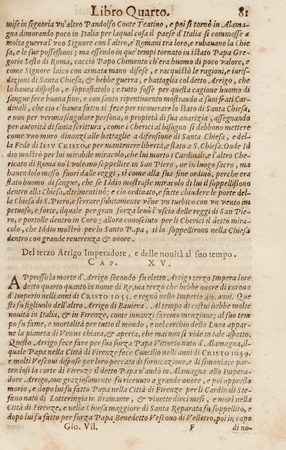 Libro Quarto. 81
mise in signoria vn'altro Pandolfo Conte Teatino, e poi si tornò in Alama-
gna dimorando poco in Italia per laqual cosa il paese d'Italia si commosse a
molta guerra l'vn Signore con l'altro, e Romani tra loro, e rubauano la Chie
sa, e le sue possessioni; ma essendo in que tempi tornato in istato Papa Gre-
gorio Sesto di Roma, cacciò Papo Chimento ch'era huomo di poco valore, e
come Signore laico con armata mano difese, e racquistò le ragioni, e iurisdi-
zioni di Santa Chiesa, & hebbe guerra, e battaglia col detto Arrigo, che
hauea diuiso, e soprastato, e tutto fosse per questa cagione huomo di
sangue fece buona fine, e con santo ripentimento mostrando a suoi frati Car-
dinali, che ciò c'hauea fatto sì fece per ricouerare lo stato di Santa Chiesa,
e non per verma singulare persona, o propietà di sua auarizia, assegnando
per autorità di santa scrittura, come i Cherici al bisogno si debbono mettere
come vno muro dinanzi alle battaglie a difensione di Santa Chiesa, e del-
la Fede di IESV CRISTO, per mantenere libertà, e stato a S. Chiesa. Onde Id
dio mostrò per lui mirabile miracolo, che lui morto i Cardinali, e l'altro Che-
ricato di Roma nol voleano soppellire in San Piero, ne in luogo sacro, ma
hauendolo messo fuori
stato huomo di sangue, che se Iddio mostrasse miracolo di lui il soppellissono
dentro alla Chiesa, altrimenti nò; e ciò ordinato, fatte chiudere le porte del-
la Chiesa di S. Piero, e serrare subitamente venne vn turbico con vn vento im
petuoso, e forte, ilquale per gran forza leuò l'vscia delle reggi di San Pie-
ro, e portolle dentro in Coro; allora conosciuto per li Cherici il detto mira-
colo, che Iddio mostrò per lo Santo Papa, si lo soppellirono nella Chiesa
dentro con grande reuerenza & onore.
Del terzo Arrigo Imperadore, e delle nouità al suo tempo.
CAP. XV.
APpresso la morte d'Arrigo secondo fu eletto Arrigo terzo Imperadore
detto quarto quanto in nome di Re, ma terzo che hebbe onore di corona
d'Imperio nelli anni di CRISTO 1055. e regnò nello Imperio 49. anni. Que
sti fu figliuolo dell'altro, Arrigo di Bauiera. Al tempo di costui hebbe molte
nouità in Italia, & in Firenze, come innanzi faremo menzione; al suo tem
po fu fame, e mortalità per tutto il mondo, e nel cerchio della Luna apparue
la pianeta di Venus chiara, & aperta, che mai non fu vide in tale aspetto.
Questo Arrigo fece fare per sua forza Papa Vittorio nato d'Alamagna, il
quale Papa nella Città di Firenze fece Concilio nelli anni di CRISTO 1059.
e molti Vescoui dispose per loro peccata di fornicazione, e di simonia; par-
tendosi la corte di Firenze il detto Papa n'andò in Alamagna allo Impera-
dore Arrigo, oue graziosamente fu riceuuto a grande onore, e poi appresso
morio, e dopo lui fu fatto Papa nella Città di Firenze per li Cardinali Ste-
fano nato di Lotteringia in Bramante, e viuette dieci mesi, e morì nella
Città di Firenze, e nella Chiesa maggiore di Santa Reparata fu soppellito, e
dopo lui fu fatto per forza Papa Benedetto Vescouo di Velletri, poi in capo
Gio. Vil. F di no-